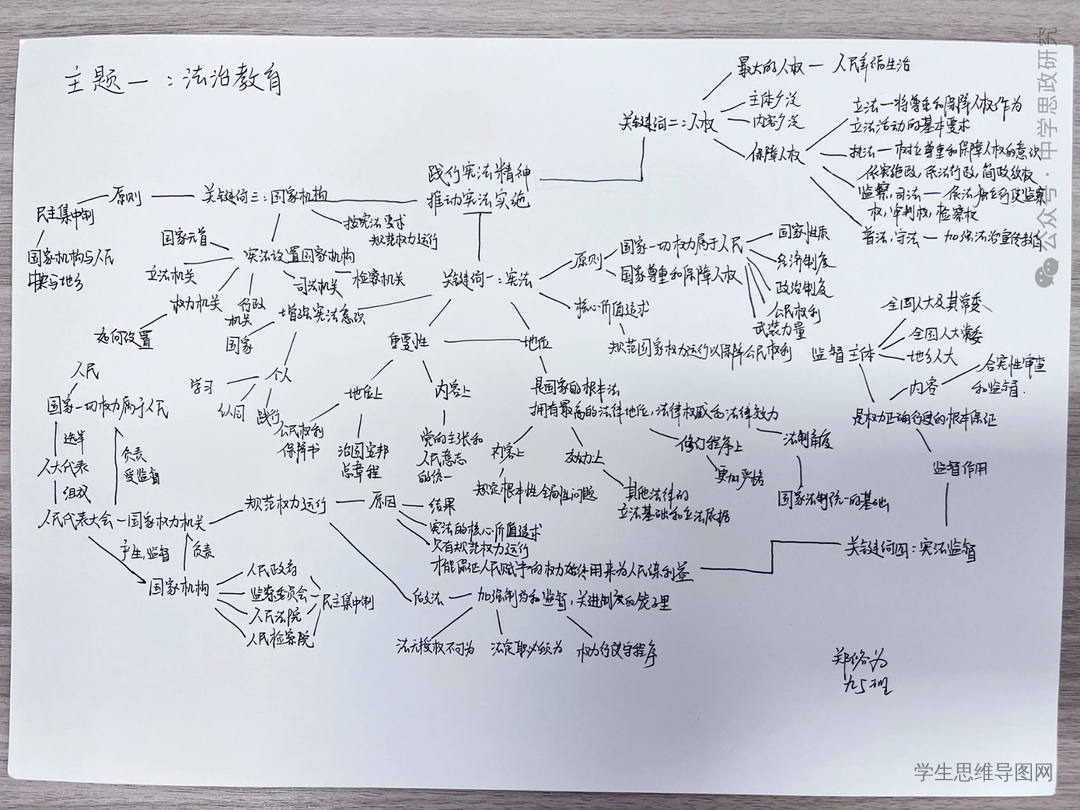 主题一：法治教育
践行宪法精神
推动宪法实施
关键词二：人权
最大的人权 — 人民幸福生活
主体广泛
内容广泛
保障人权
立法 — 将尊重和保障人权作为
立法活动的基本要求
执法 — 树立尊重和保障人权的意识
依宪施政，依法行政，简政放权
监察，司法 — 依法独立行使监察
权，审判权，检察权
普法，守法 — 加强法治宣传教育
关键词三：国家机构
原则
民主集中制
国家机构与人民
中央与地方
按宪法要求
规范权力运行
宪法设置国家机构
国家元首
立法机关
权力机关
行政
机关
司法机关
检察机关
如何设置
关键词一：宪法
增强宪法意识
国家
个人
学习
认同
践行
原则
国家一切权力属于人民
国家尊重和保障人权
国家性质
经济制度
政治制度
公民权利
武装力量
核心价值追求
规范国家权力运行以保障公民权利
重要性
地位
地位上
公民权利
保障书
治国安邦
总章程
内容上
党的主张和
人民意志
的统一
是国家的根本法
拥有最高的法律地位，法律权威和法律效力
内容上
规定根本性全局性问题
效力上
其他法律的
立法基础和立法依据
修订程序上
更加严格
法制角度
国家法制统一的基础
监督主体
全国人大及其常委
全国人大常委
地方人大
内容
合宪性审查
和监督.
是权力正确行使的根本保证
监督作用
关键词四：宪法监督
人民
国家一切权力属于人民
选举
负责
受监督
人大代表
组成
人民代表大会 — 国家权力机关
产生，监督
负责
国家机构
人民政府
监察委员会
人民法院
人民检察院
民主集中制
规范权力运行
原因
结果
宪法的核心价值追求
只有规范权力运行
才能保证人民赋予的权力始终用来为人民谋利益
加强制约和监督，关进制度的笼子里
法无授权不可为
法定职责必须为
权力行使守程序
九5班
公众号·中学思政研究
学生思维导图网